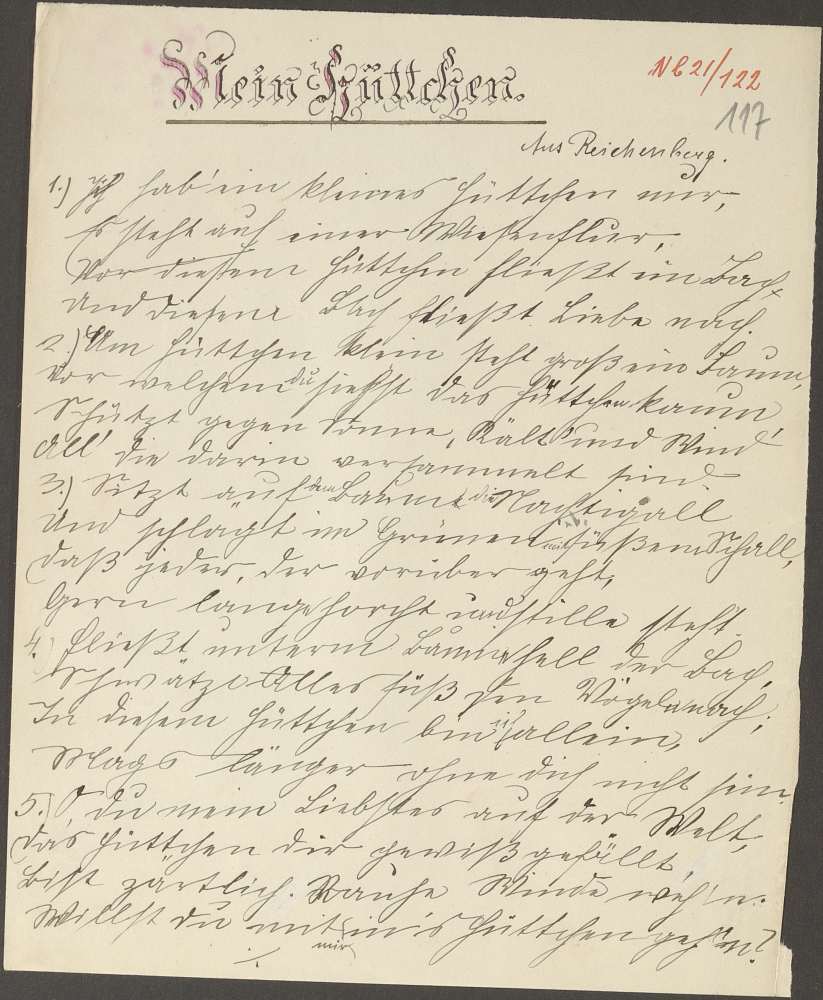 Mein Hüttchen.
Nl 21/122
117
Aus Reichenberg.
1.) Ich hab' ein kleines Hüttchen nur,
Es steht auf einer Wiesenflur,
Vor diesem Hüttchen fließt ein Bach,
Und diesem Bach fließt Liebe nach.
2.) Am Hüttchen klein steht groß ein Baum,
Vor welchem du siehst das Hüttchen kaum
Schützt gegen Sonne, Kält' und Wind
All' die darin versammelt sind.
3.) Sitzt auf dem Baume die Nachtigall
Und schlägt im Grünen mit süßem Schall,
Daß jeder, der vorüber geht,
Gern lange horcht und stille steht.
4.) Fließt unterm Baume hell der Bach,
Schwätzt Alles süß den Vögeln nach;
In diesem Hüttchen bin ich allein,
Mags länger ohne dich nicht sein.
5.) O, du mein Liebstes auf der Welt,
Das Hüttchen dir gewiß gefällt,
Bist zärtlich. Rauhe Winde weh'n.
Willst du mit mir in's Hüttchen geh'n?